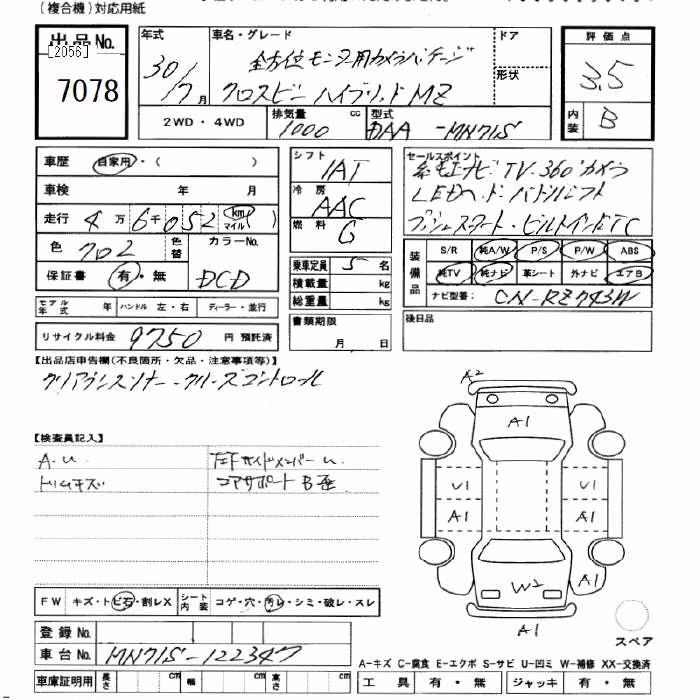 (複合機)対応用紙
出品No.
[2056]
7078
年式
30/7月
車名・グレード
全方位モニタ用カメラパッケージ
クロスビー ハイブリッドMZ
ドア
形状
2WD・4WD
排気量
1000 cc
型式
DAA -MN71S
評価点
3.5
内装
B
車歴 自家用・( )
車検 年 月
走行 4万6千052 km マイル ( )
色 クロ2
色替
カラーNo.
保証書 有・無
DCD
シフト
IAT
冷房
AAC
燃料
G
乗車定員 5名
積載量 kg
総重量 kg
セールスポイント
純正ナビTV・360°カメラ
LEDヘッド・パドルシフト
プッシュスタート・ビルトインETC
装備品
S/R 純A/W P/S P/W ABS
純TV 純ナビ 革シート 外ナビ エアB
ナビ型番: CN-RZ743W
モデル年式 年 ハンドル 左・右 ディーラー・並行
リサイクル料金 9750 円 預託済
書類期限
月 日
後日品
【出品店申告欄(不良箇所・欠品・注意事項等)】
クリアランスソナー・クルーズコントロール
【検査員記入】
A.U
ドリムキズ
左下サイドメンバーU
コアサポートB歪
A2
A1
U1
U1
A1
A1
W2
A1
A1
スペア
FW キズ・トビ石・割レX
シート内装 コゲ・穴・汚レ・シミ・破レ・スレ
登録No.
車台No. MN71S-122347
車庫証明用 長さ cm 幅 cm 高さ cm
A-キズ C-腐食 E-エクボ S-サビ U-凹ミ W-補修 XX-交換済
工具 有・無 ジャッキ 有・無